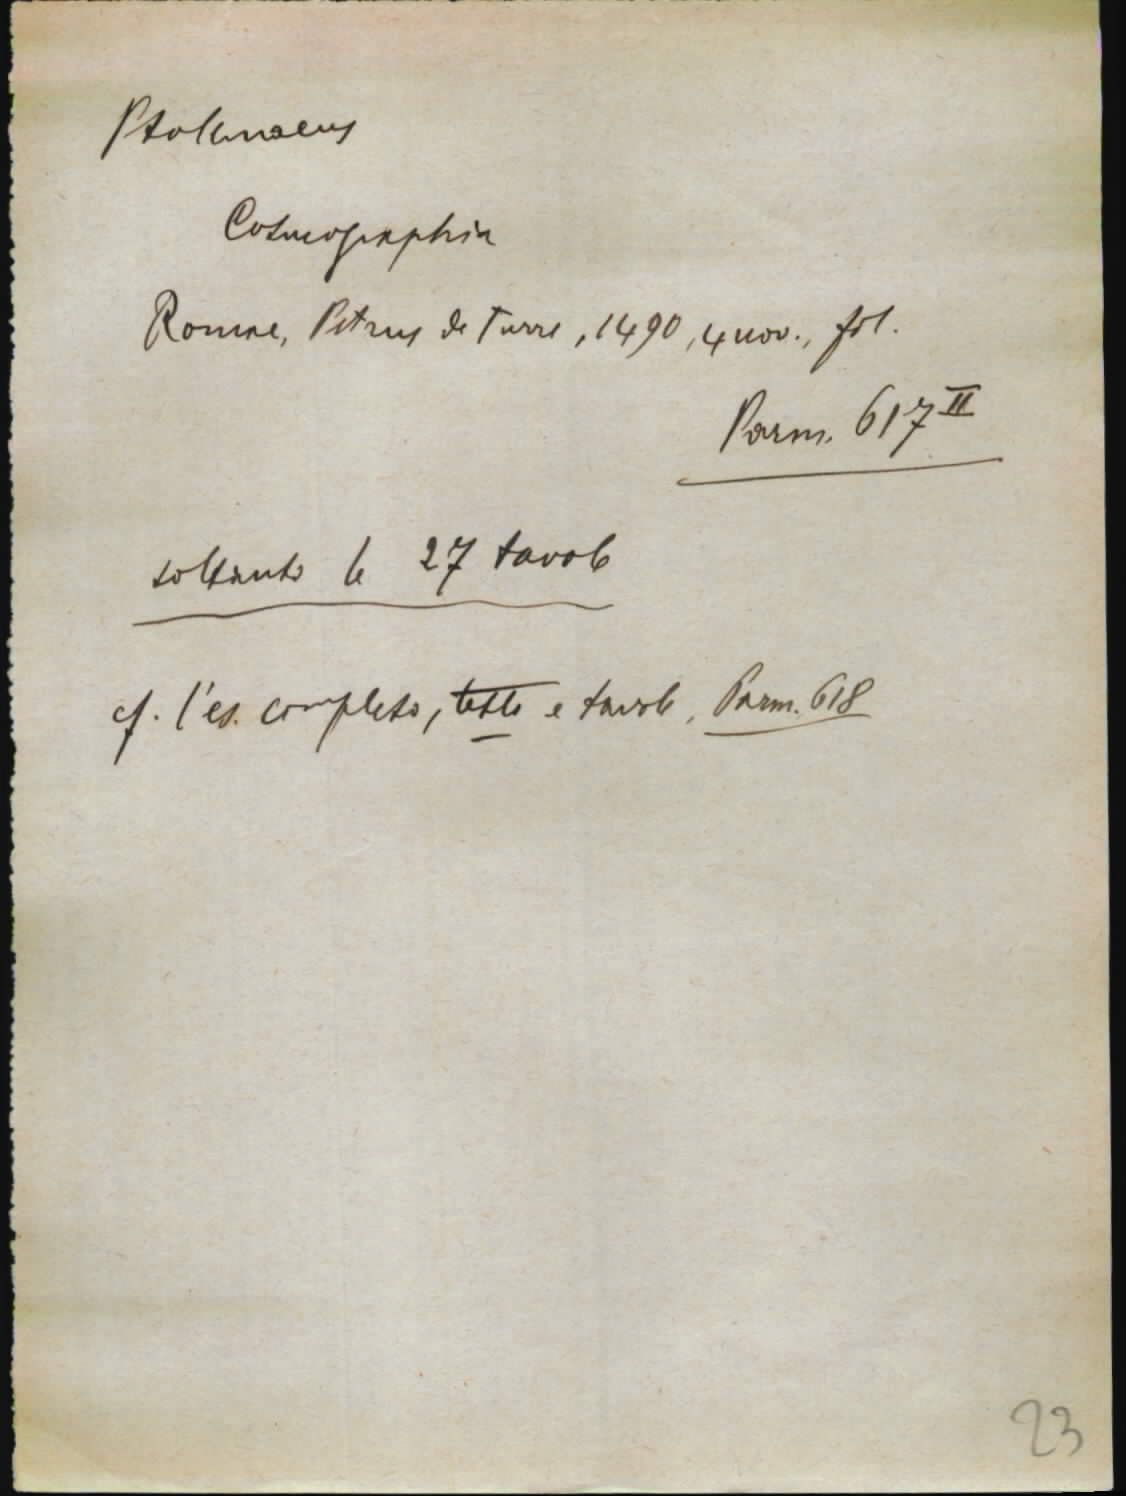 Ptolemaeus
Cosmographia
Romae, Petrus de Turre, 1490, 4 nov., fol.
Parm. 617 II
soltanto le 27 tavole
cf. l'es. completo, testo e tavole, Parm. 618
23